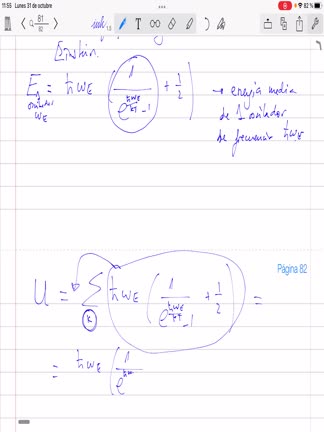 11:55 Lunes 31 de octubre 82 %
81
82
Einstein.
E_1 oscilador ω_E = ħω_E ( 1 / (e^(ħω_E/kT) - 1) + 1/2 ) → energía media
de 1 oscilador
de frecuencia ħω_E
Página 82
U = Σ_k ħω_E ( 1 / (e^(ħω_E/kT) - 1) + 1/2 ) =
= ħω_E ( 1 / e^ħω